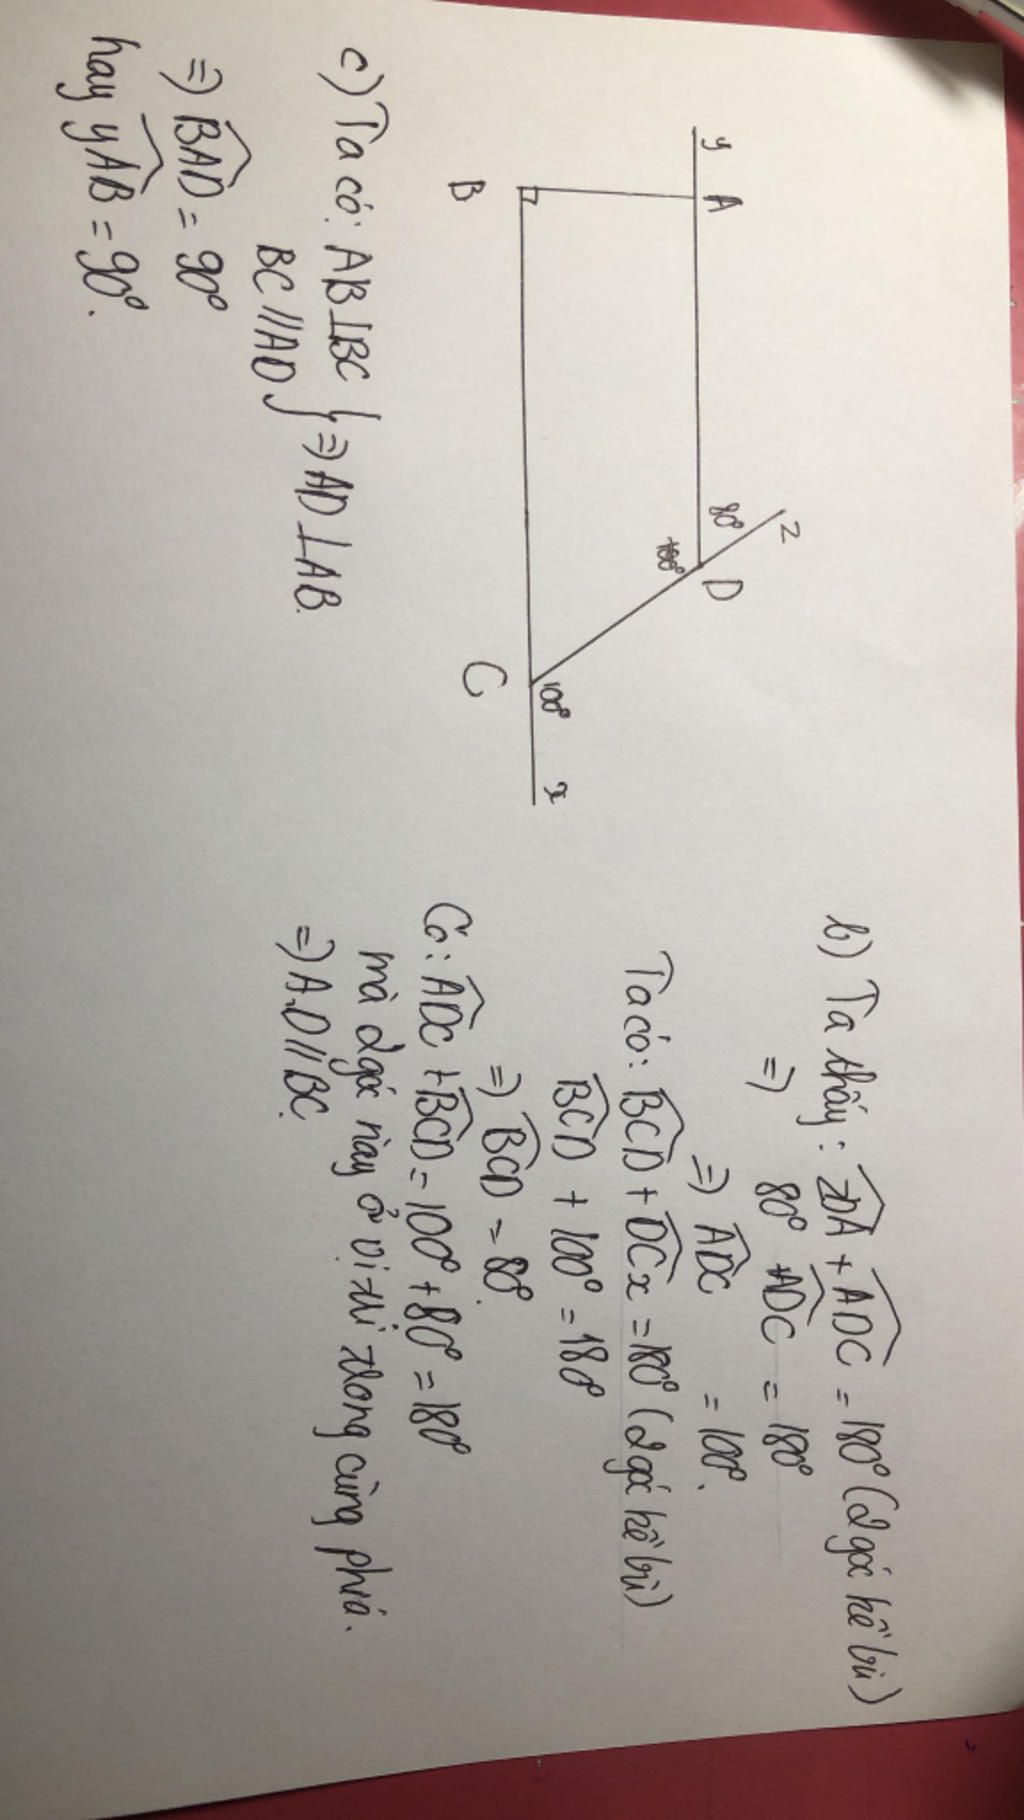 y A 80° z
100° D
B C 100° x
b) Ta thấy: zDA + ADC = 180° (2 góc kề bù)
=> 80° + ADC = 180°
=> ADC = 100°.
Ta có: BCD + DCx = 180° (2 góc kề bù)
BCD + 100° = 180°
=> BCD = 80°.
Có: ADC + BCD = 100° + 80° = 180°
mà 2 góc này ở vị trí trong cùng phía.
=> AD // BC.
c) Ta có: AB ⊥ BC
BC // AD } => AD ⊥ AB.
=> BAD = 90°
hay yAB = 90°.